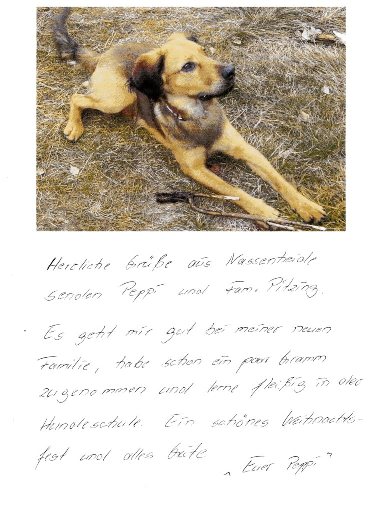 Herzliche Grüße aus Nassenheide
senden Peppi und Fam. Pitzing.
Es geht mir gut bei meiner neuen
Familie, habe schon ein paar Gramm
zugenommen und lerne fleißig in der
Hundeschule. Ein schönes Weihnachts-
fest und alles Gute
„Euer Peppi"